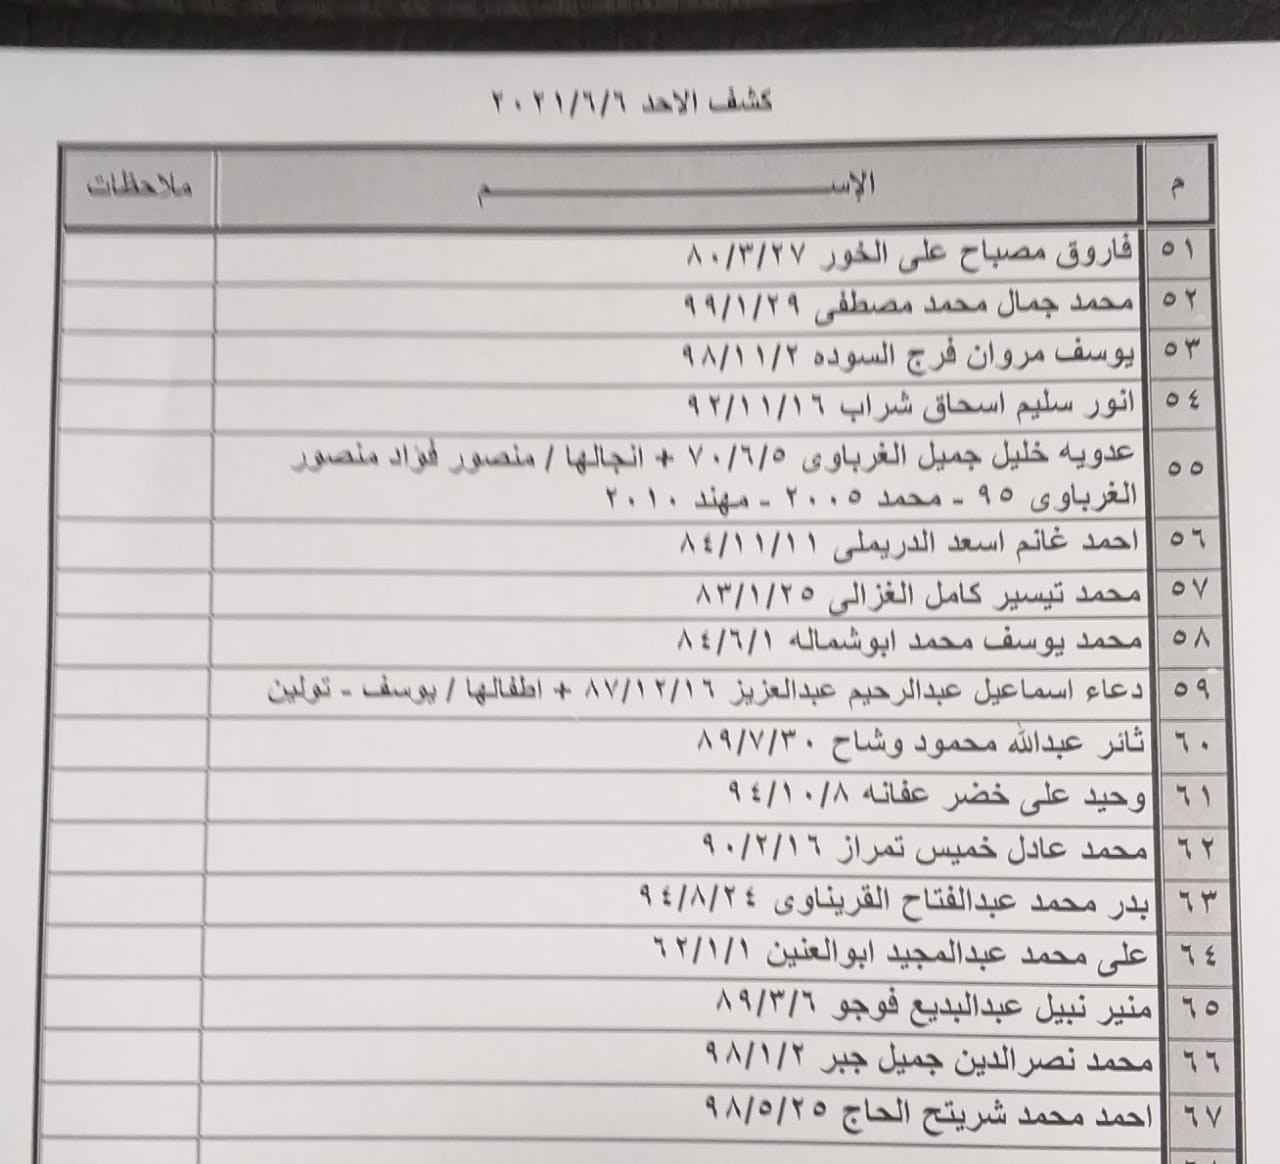 كشف الاحد ٢٠٢١/٦/٦
م الإســـــــم ملاحظات
٥١ فاروق مصباح على الخور ٨٠/٣/٢٧
٥٢ محمد جمال محمد مصطفى ٩٩/١/٢٩
٥٣ يوسف مروان فرج السوده ٩٨/١١/٢
٥٤ انور سليم اسحاق شراب ٩٢/١١/١٦
٥٥ عدويه خليل جميل الغرباوى ٧٠/٦/٥ + انجالها / منصور فؤاد منصور
الغرباوى ٩٥ - محمد ٢٠٠٥ - مهند ٢٠١٠
٥٦ احمد غانم اسعد الدريملى ٨٤/١١/١١
٥٧ محمد تيسير كامل الغزالى ٨٣/١/٢٥
٥٨ محمد يوسف محمد ابوشماله ٨٤/٦/١
٥٩ دعاء اسماعيل عبدالرحيم عبدالعزيز ٨٧/١٢/١٦ + اطفالها / يوسف - تولين
٦٠ ثائر عبدالله محمود وشاح ٨٩/٧/٣٠
٦١ وحيد على خضر عفانه ٩٤/١٠/٨
٦٢ محمد عادل خميس تمراز ٩٠/٢/١٦
٦٣ بدر محمد عبدالفتاح القريناوى ٩٤/٨/٢٤
٦٤ على محمد عبدالمجيد ابوالعنين ٦٢/١/١
٦٥ منير نبيل عبدالبديع فوجو ٨٩/٣/٦
٦٦ محمد نصرالدين جميل جبر ٩٨/١/٢
٦٧ احمد محمد شريتح الحاج ٩٨/٥/٢٥